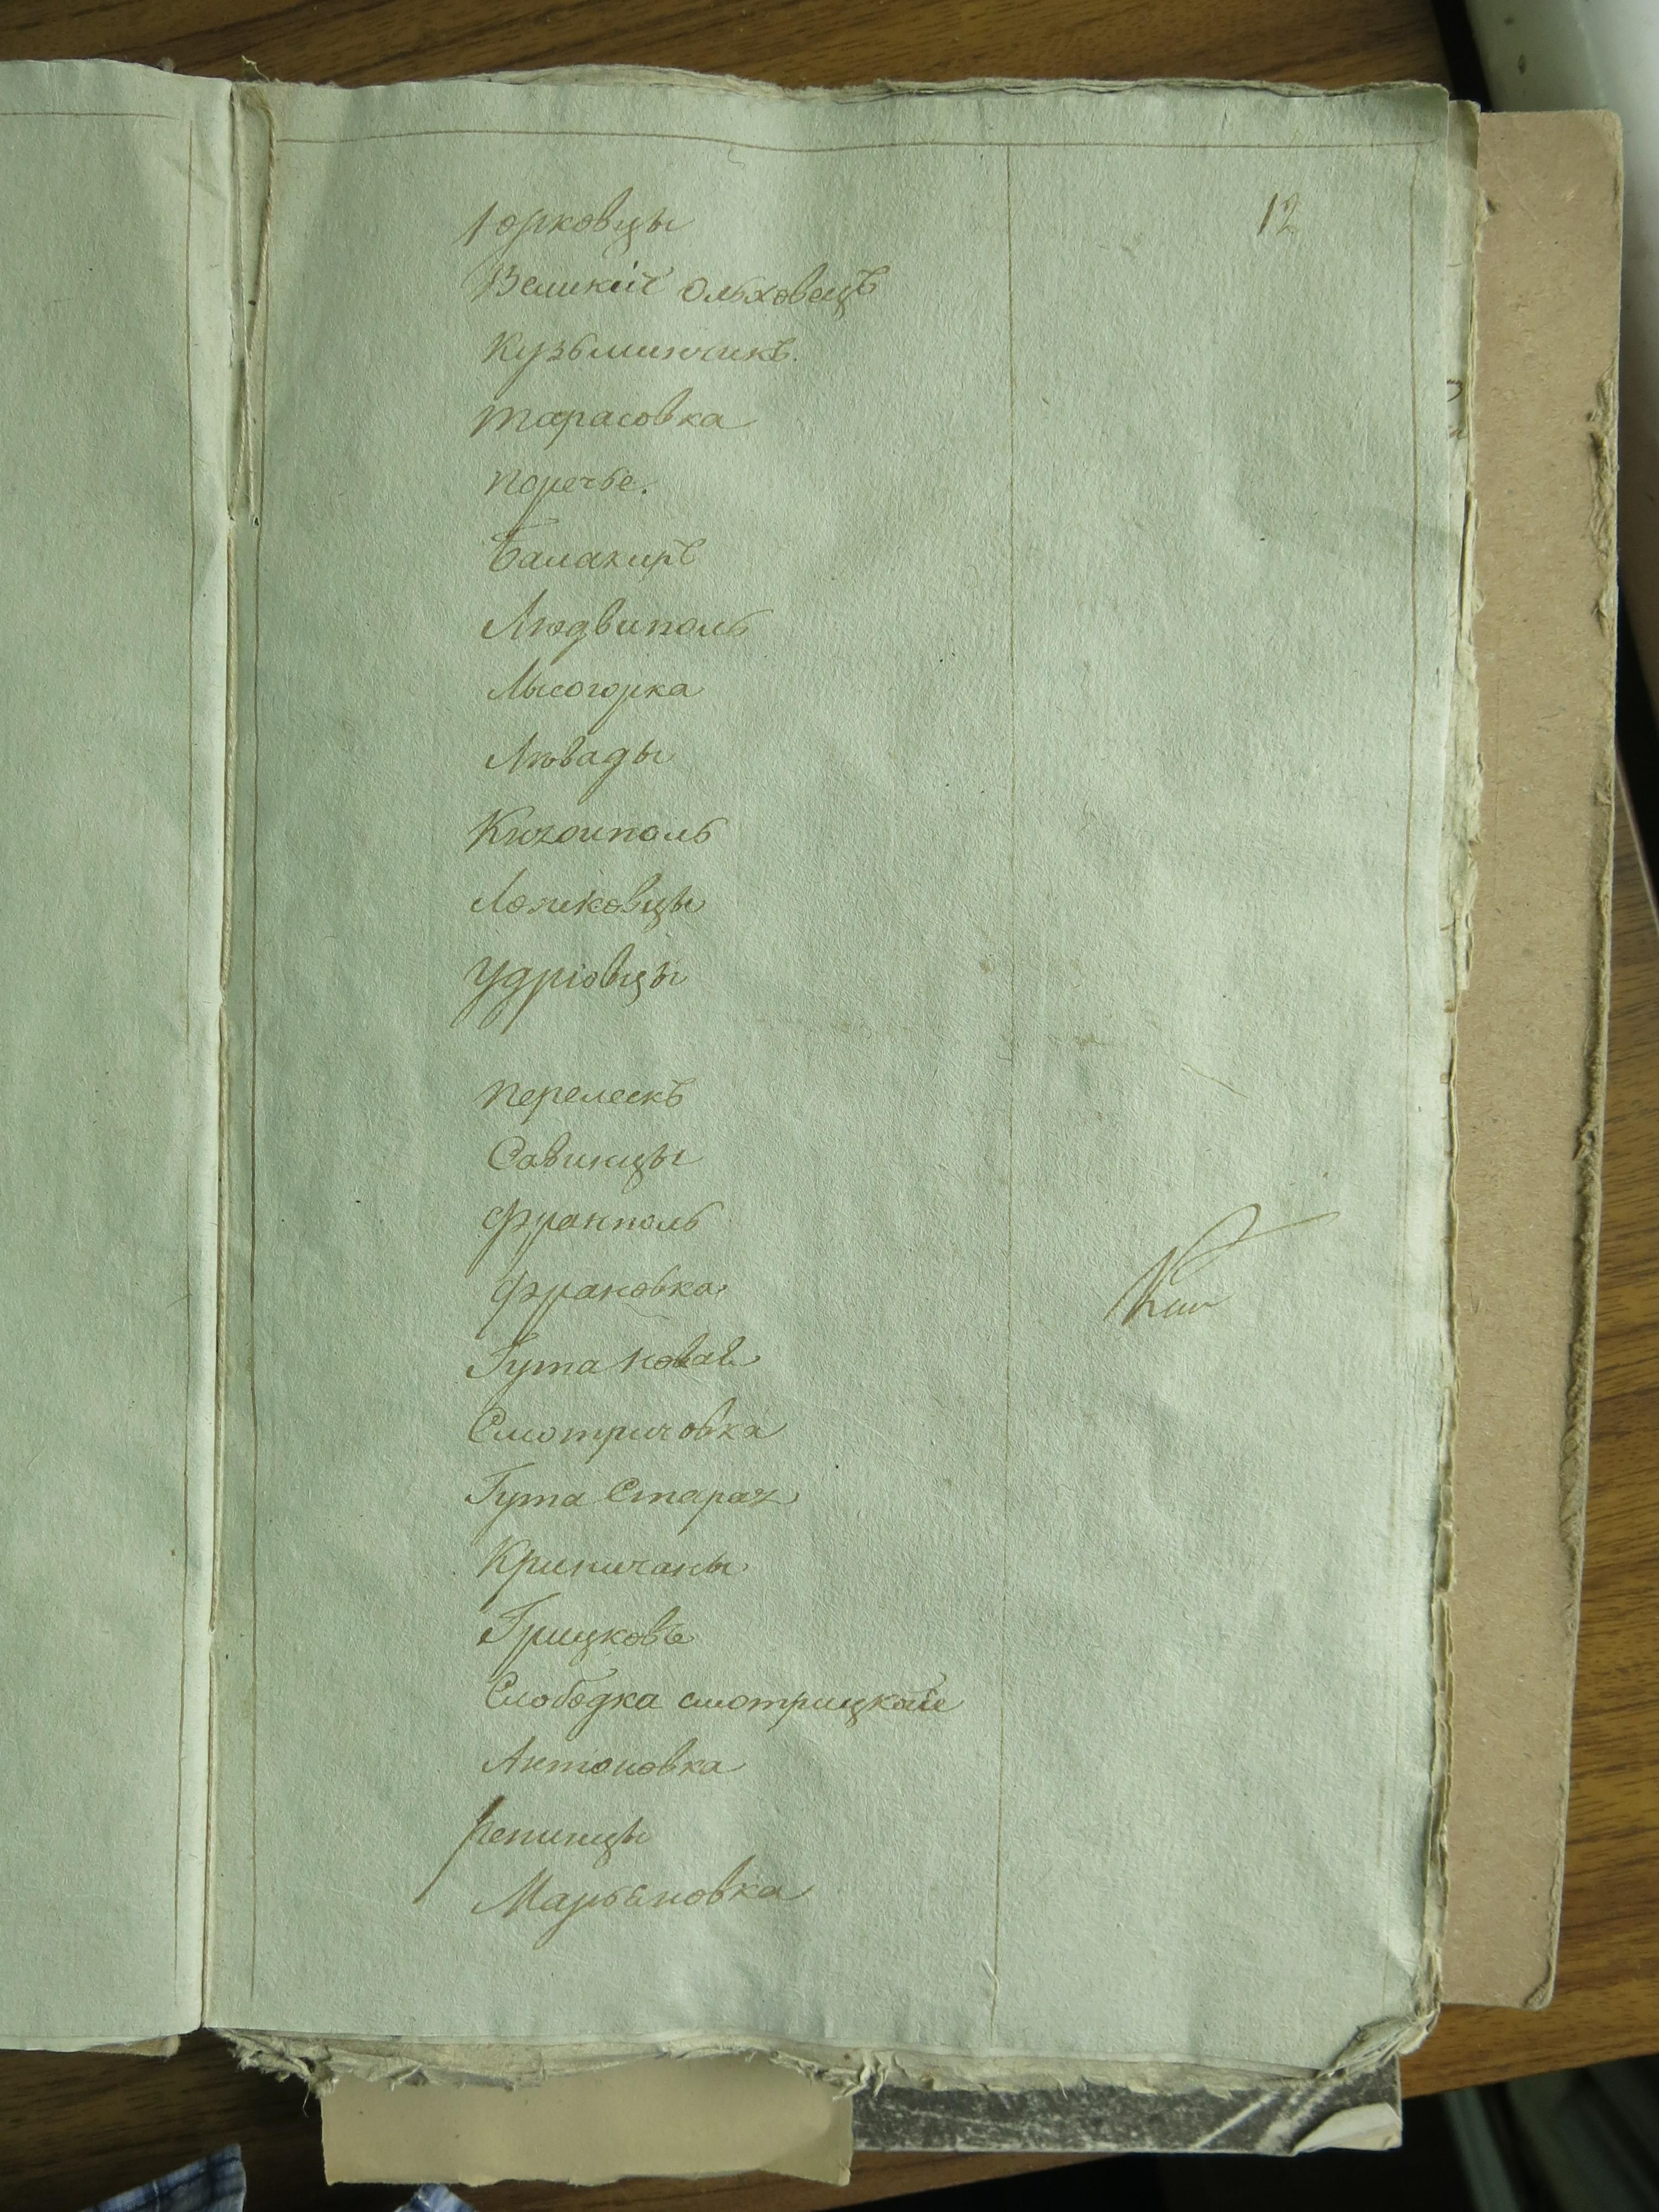 Юрковцы
12
Великій Ольховецъ
Кузьминчикъ.
Тарасовка
Поречье.
Балакиръ
Людвиполь
Лысогорка
Левады
Лошковцы
Удріовцы
Перелескъ
Савинцы
Франполь
Франовка
Гута Новая
Смотричовка
Гута Старая
Криничаны
Грицковъ
Слободка смотрицкая
Антоновка
Репинцы
Марьяновка